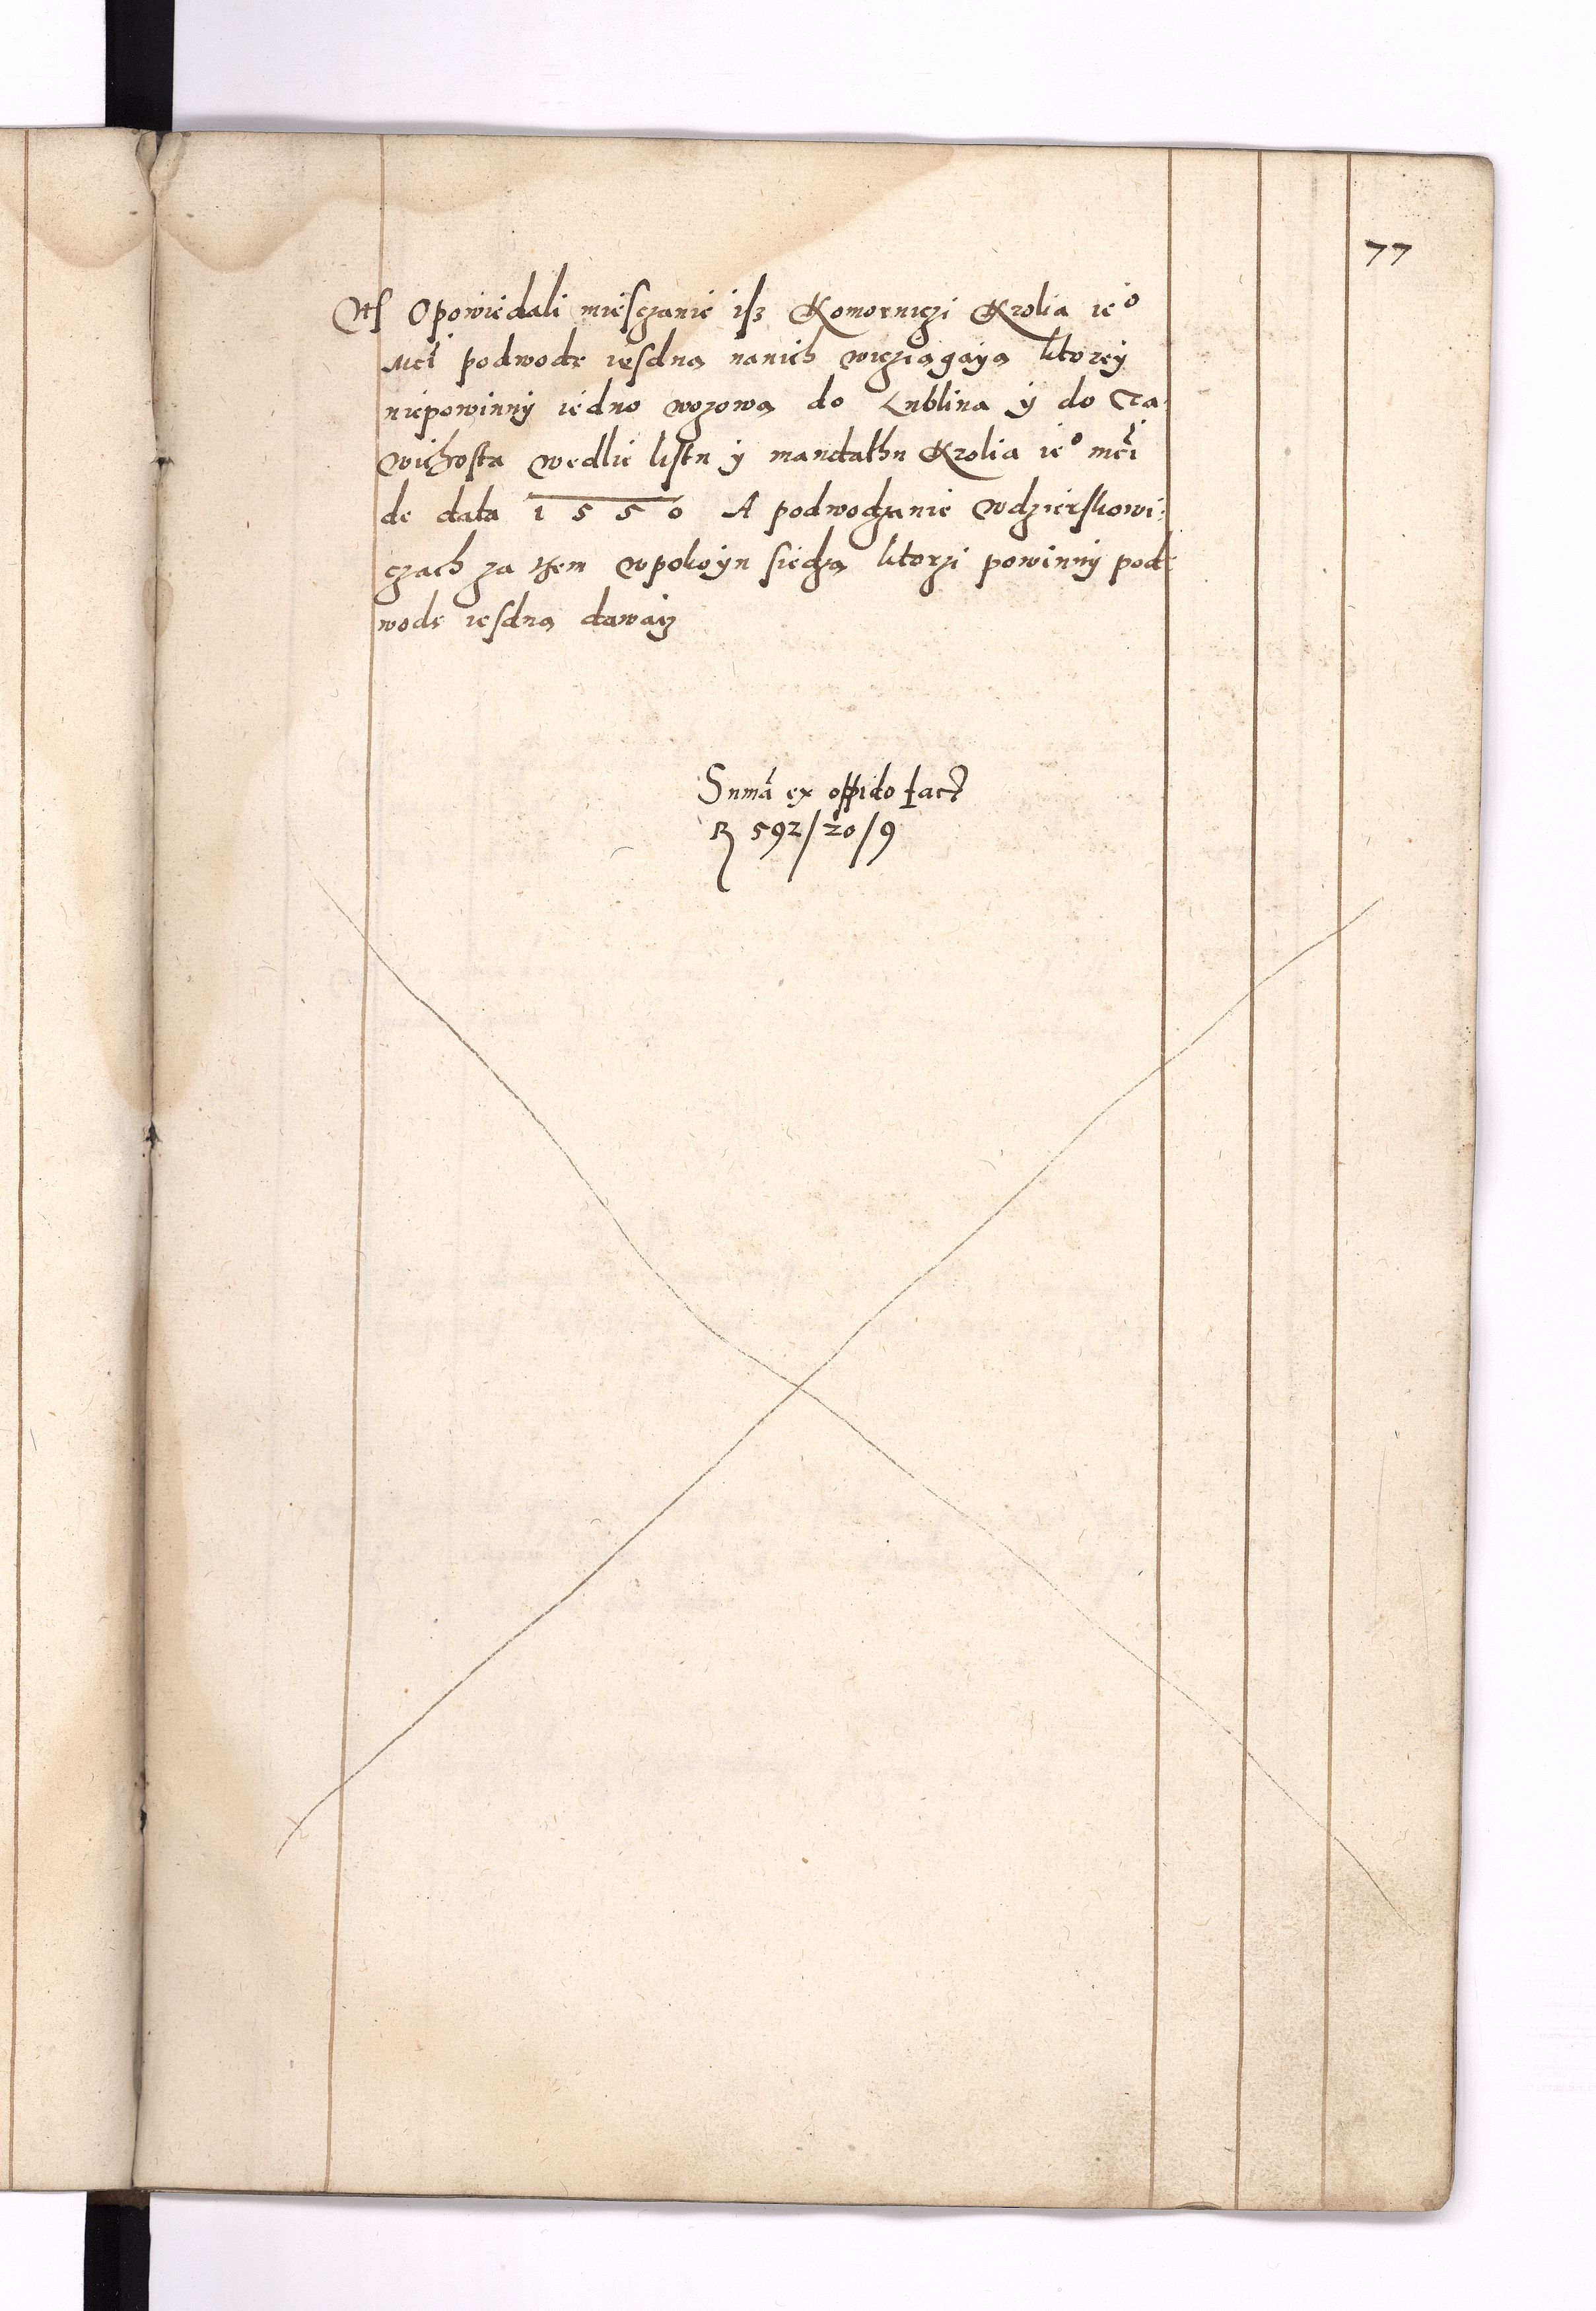 77
Opowiedali miesczanie isz Komorniczi Krolia ie°
Mci podwode iesdną nanich wicziągayą ktorey
niepowinny iedno wozową do Lublina y do Za-
wichosta wedlie listu y mandathu Krolia ie° mci
de data 1550 A podwodzanie wdzierskowi-
czach za tem wpokoyu siedzą ktorzi powinny pod-
wode iesdną dawacz
Suma ex oppido fact
R 592/20/9